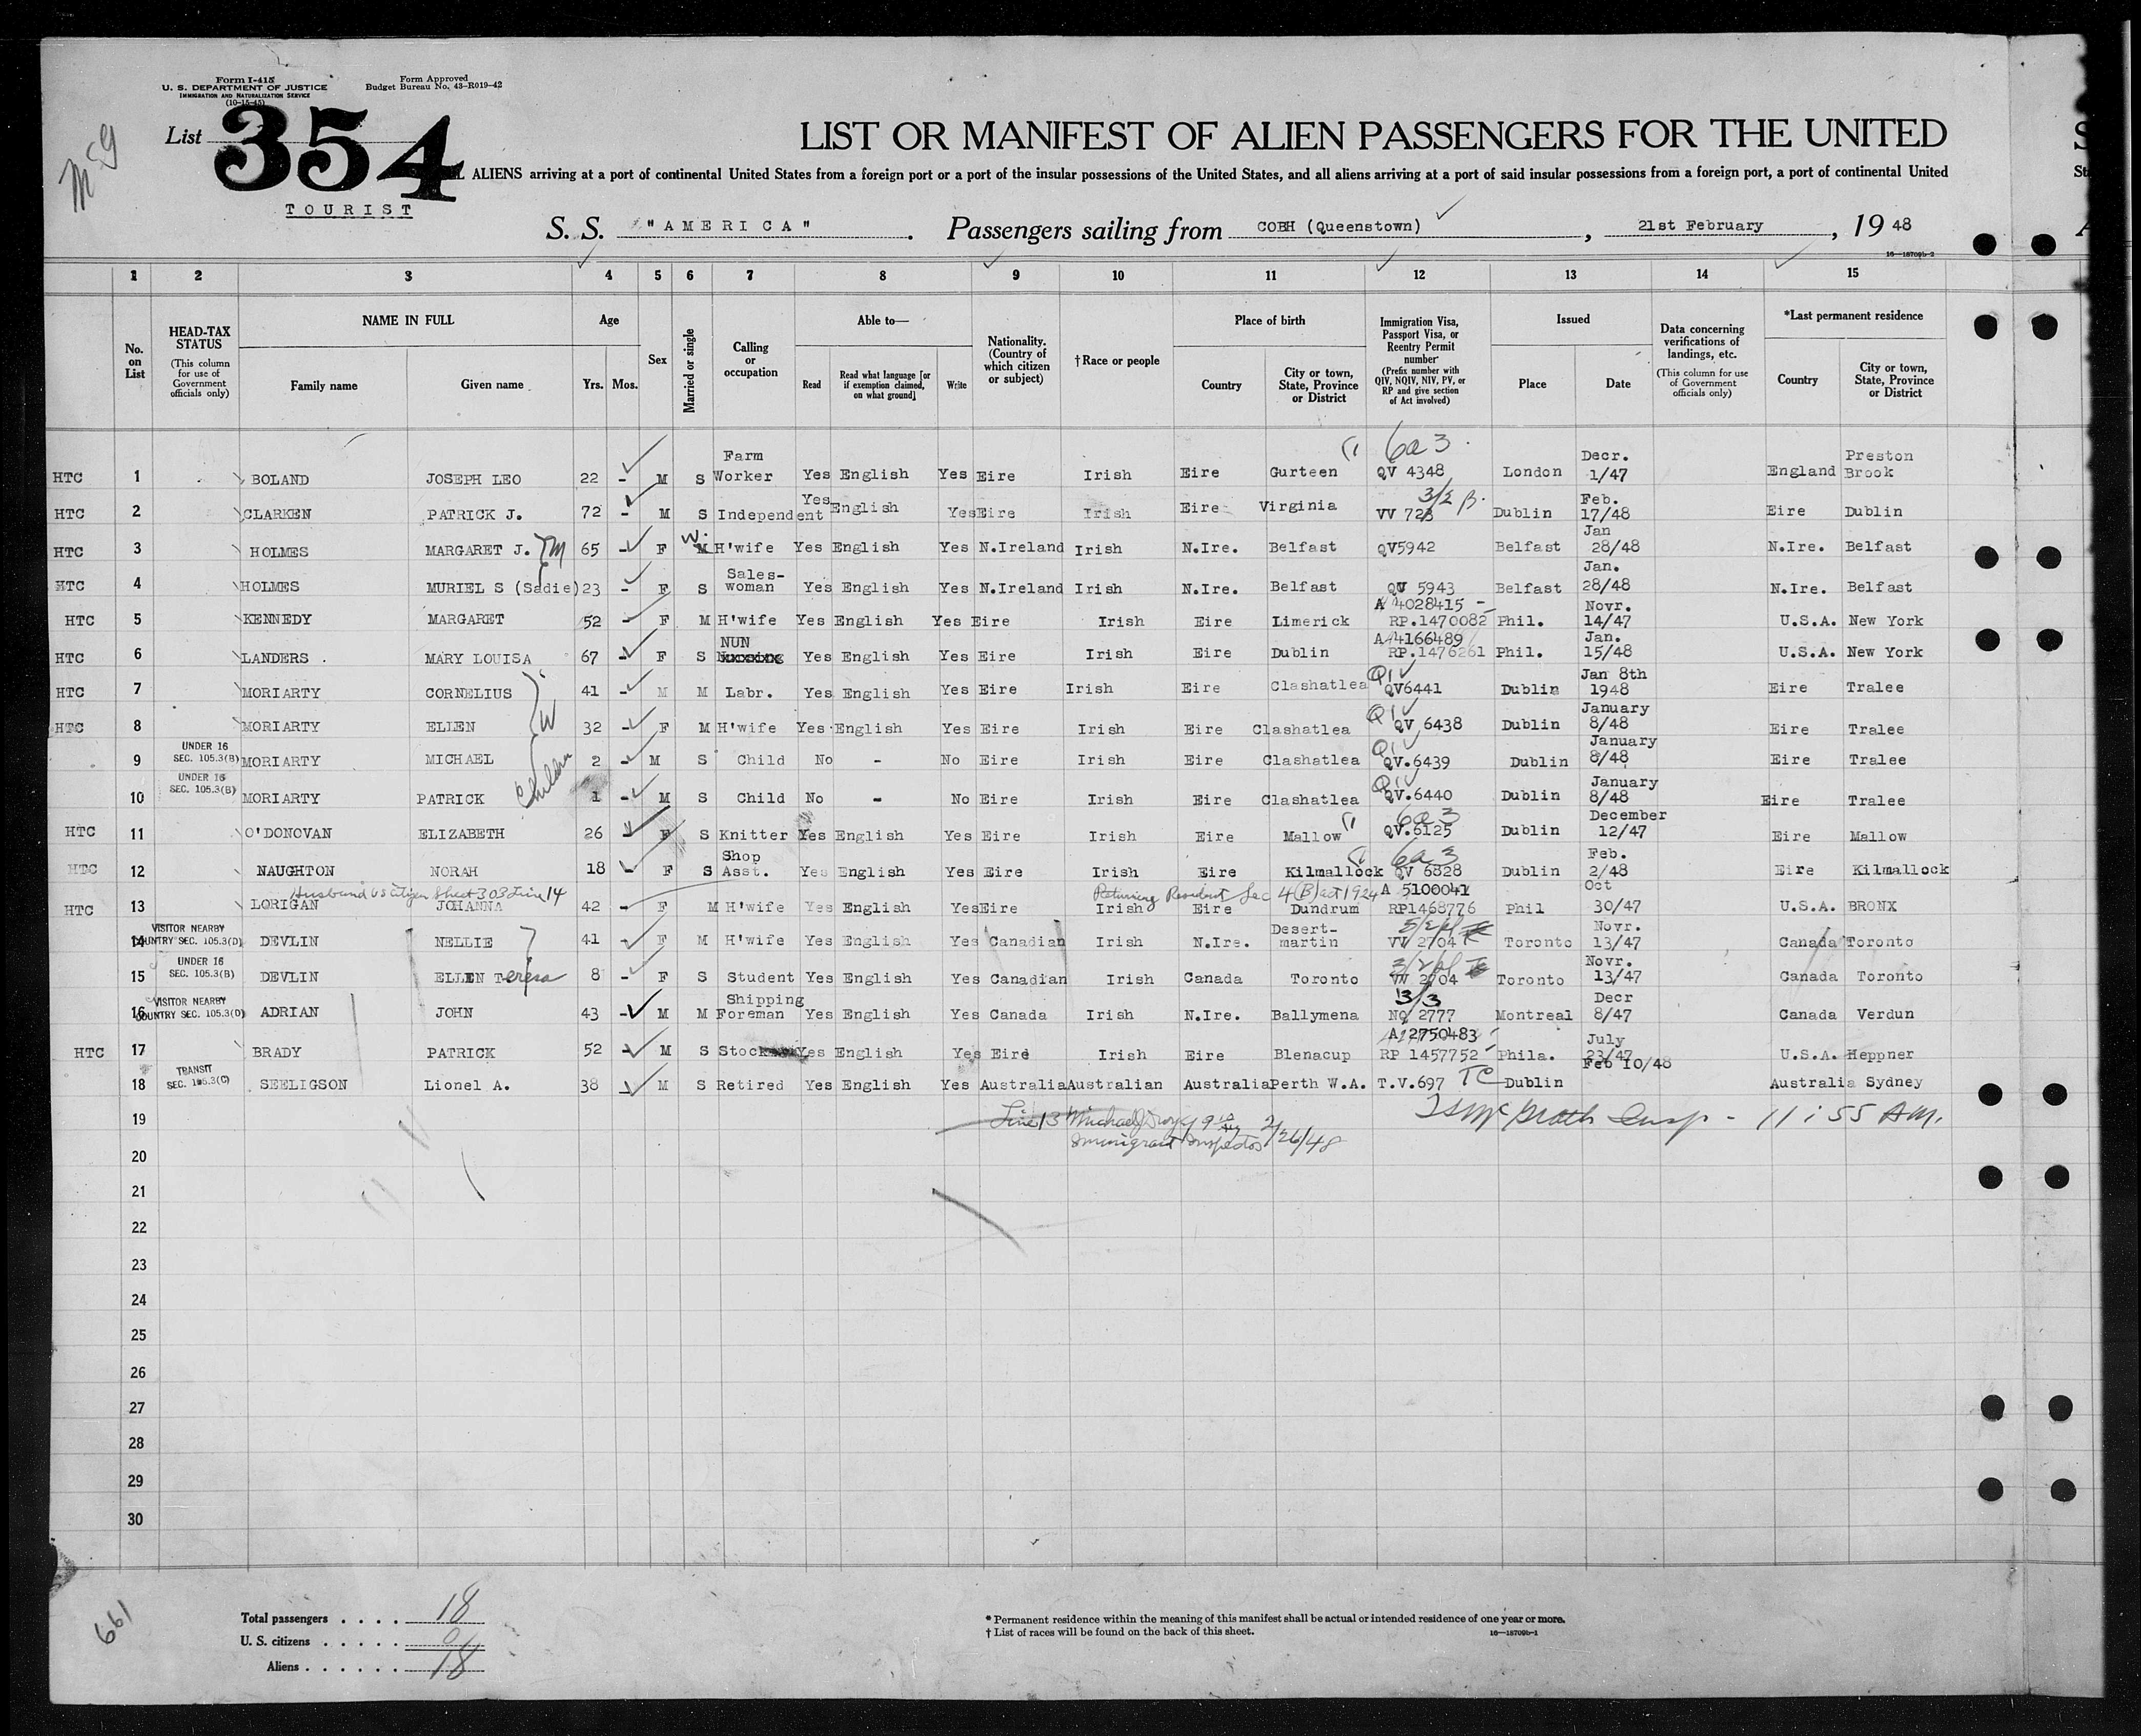 Form I-415
U. S. DEPARTMENT OF JUSTICE
IMMIGRATION AND NATURALIZATION SERVICE
(10-15-45)
Form Approved
Budget Bureau No. 43-R019-42
List 354
TOURIST
LIST OR MANIFEST OF ALIEN PASSENGERS FOR THE UNITED
ALIENS arriving at a port of continental United States from a foreign port or a port of the insular possessions of the United States, and all aliens arriving at a port of said insular possessions from a foreign port, a port of continental United
S. S. "AMERICA". Passengers sailing from COBH (Queenstown), 21st February, 19 48
16—18709b-2
1 2 3 4 5 6 7 8 9 10 11 12 13 14 15
No. on List
HEAD-TAX STATUS (This column for use of Government officials only)
NAME IN FULL Family name Given name
Age Yrs. Mos.
Sex
Married or single
Calling or occupation
Able to— Read Read what language [or if exemption claimed, on what ground] Write
Nationality. (Country of which citizen or subject)
†Race or people
Place of birth Country City or town, State, Province or District
Immigration Visa, Passport Visa, or Reentry Permit number (Prefix number with QIV, NQIV, NIV, PV, or RP and give section of Act involved)
Issued Place Date
Data concerning verifications of landings, etc. (This column for use of Government officials only)
*Last permanent residence Country City or town, State, Province or District
HTC 1 BOLAND JOSEPH LEO 22 - M S Farm Worker Yes English Yes Eire Irish Eire Gurteen 6a3 QV 4348 London Decr. 1/47 England Preston Brook
HTC 2 CLARKEN PATRICK J. 72 - M S Independent Yes English Yes Eire Irish Eire Virginia 3/2 B. VV 723 Dublin Feb. 17/48 Eire Dublin
HTC 3 HOLMES MARGARET J. 65 - F W. M H'wife Yes English Yes N.Ireland Irish N.Ire. Belfast QV5942 Belfast Jan 28/48 N.Ire. Belfast
HTC 4 HOLMES MURIEL S (Sadie) 23 - F S Sales-woman Yes English Yes N.Ireland Irish N.Ire. Belfast QV 5943 Belfast Jan. 28/48 N.Ire. Belfast
HTC 5 KENNEDY MARGARET 52 - F M H'wife Yes English Yes Eire Irish Eire Limerick A 4028415 RP.1470082 Phil. Novr. 14/47 U.S.A. New York
HTC 6 LANDERS MARY LOUISA 67 - F S NUN Yes English Yes Eire Irish Eire Dublin A 4166489 RP.1476261 Phil. Jan. 15/48 U.S.A. New York
HTC 7 MORIARTY CORNELIUS 41 - M M Labr. Yes English Yes Eire Irish Eire Clashatlea QIV QV6441 Dublin Jan 8th 1948 Eire Tralee
HTC 8 MORIARTY ELLEN W 32 - F M H'wife Yes English Yes Eire Irish Eire Clashatlea QIV QV 6438 Dublin January 8/48 Eire Tralee
UNDER 16 SEC. 105.3(B) 9 MORIARTY MICHAEL 2 - M S Child No - No Eire Irish Eire Clashatlea QIV QV.6439 Dublin January 8/48 Eire Tralee
UNDER 16 SEC. 105.3(B) 10 MORIARTY PATRICK children 1 - M S Child No - No Eire Irish Eire Clashatlea QIV QV.6440 Dublin January 8/48 Eire Tralee
HTC 11 O'DONOVAN ELIZABETH 26 F S Knitter Yes English Yes Eire Irish Eire Mallow 6a3 QV.6125 Dublin December 12/47 Eire Mallow
HTC 12 NAUGHTON NORAH 18 - F S Shop Asst. Yes English Yes Eire Irish Eire Kilmallock 6a3 QV 6828 Dublin Feb. 2/48 Eire Kilmallock
Husband US citizen Sheet 303 Line 14 Returning Resident Sec 4(B) act 1924
HTC 13 LORIGAN JOHANNA 42 - F M H'wife Yes English Yes Eire Irish Eire Dundrum A 5100041 RP1468776 Phil Oct 30/47 U.S.A. BRONX
VISITOR NEARBY COUNTRY SEC. 105.3(D) 14 DEVLIN NELLIE 41 - F M H'wife Yes English Yes Canadian Irish N.Ire. Desert-martin VV 2704 Toronto Novr. 13/47 Canada Toronto
UNDER 16 SEC. 105.3(B) 15 DEVLIN ELLEN Teresa 8 - F S Student Yes English Yes Canadian Irish Canada Toronto VV 2704 Toronto Novr. 13/47 Canada Toronto
VISITOR NEARBY COUNTRY SEC. 105.3(D) 16 ADRIAN JOHN 43 - M M Shipping Foreman Yes English Yes Canada Irish N.Ire. Ballymena 3/3 NQ 2777 Montreal Decr 8/47 Canada Verdun
HTC 17 BRADY PATRICK 52 - M S Stock Yes English Yes Eire Irish Eire Blenacup A 2750483 RP 1457752 Phila. July 23/47 U.S.A. Heppner
TRANSIT SEC. 105.3(C) 18 SEELIGSON Lionel A. 38 M S Retired Yes English Yes Australia Australian Australia Perth W.A. T.V.697 TC Dublin Feb 10/48 Australia Sydney
19 Line 13 Michael 2/26/48 McGrath Insp - 11:55 AM.
Immigrant Inspector
20
21
22
23
24
25
26
27
28
29
30
661
Total passengers . . . . 18
U. S. citizens . . . . . 0
Aliens . . . . . . 18
* Permanent residence within the meaning of this manifest shall be actual or intended residence of one year or more.
† List of races will be found on the back of this sheet.
16—18709b-1